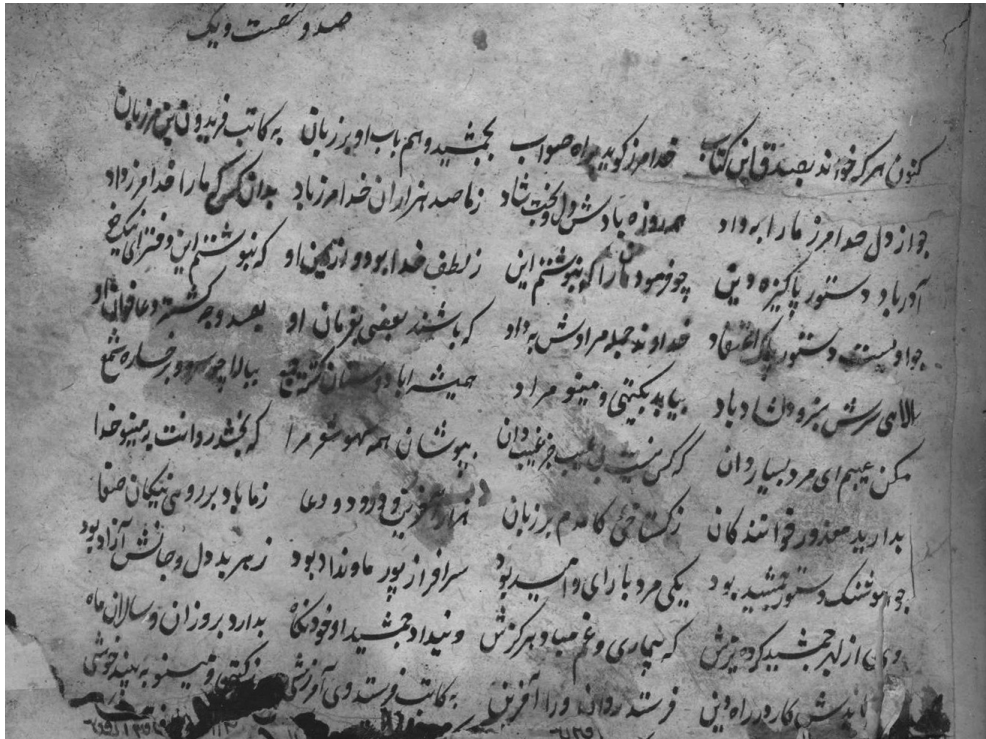 صد و شصت و یک
کنون هر که خواند بصدق این کتاب خدامرز گوید براه صواب بجمشید و هم باب او بر زبان به کاتب فریدون بن مرزبان
چو از دل خدامرز ما را بداد همه روزه بادش دل و بخت شاد ز ما صد هزاران خدامرز باد بدان کس که ما را خدامرز داد
آدرباد دستور پاکیزه دین چو فرمود ما را که بنوشتم این ز لطف خدا بود و از یمن او که بنوشتم این دفتر
دستور پاک اعتقاد خداوند جمله مرادش بداد که باشند بعضی بفرمان او
الاهی سرش سبز و دلشاد باد بیابد بگیتی و مینو مراد همیشه ببالا چو سرو و رخساره شمع
مکن عیبم ای مرد بسیاردان که کس نیست بی عیب جز غیبدان بپوشان همه سهو شعر مرا که بخشد روانت بمینو خدا
بدارید معذور خوانندگان ز گستاخی کامدم بر زبان هزار آفرین و درود و دعا ز ما باد بر روی نیکان صفا
چو هوشنگ دستور جمشید بود یکی مرد با رای و امید بود سرافراز پور ماونداد بود ز هر بد دل و جانش آزاد بود
از بهر جمشید که بیماری و غم مبادا هرگزش و نیداد جمشید او خود نگاه بدارد بروزان و سالان ماه
کار در راه دین فرستد روان ورا آفرین به کاتب فرستد وی آمرزشی ز گیتی و مینو به بیند خوشی